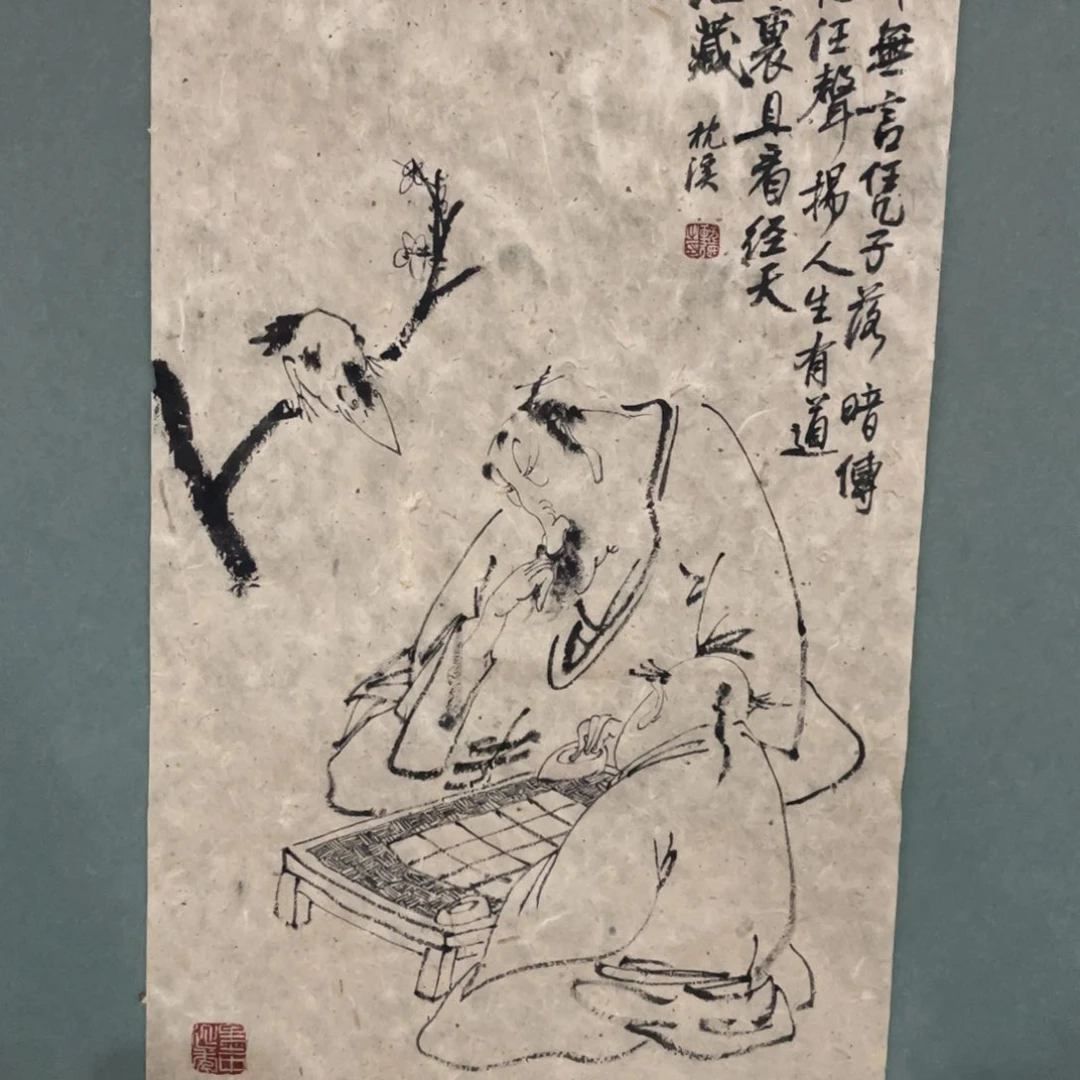 無言凭子落暗傳
任聲揚人生有道
裏且看经天
藏
枕溪